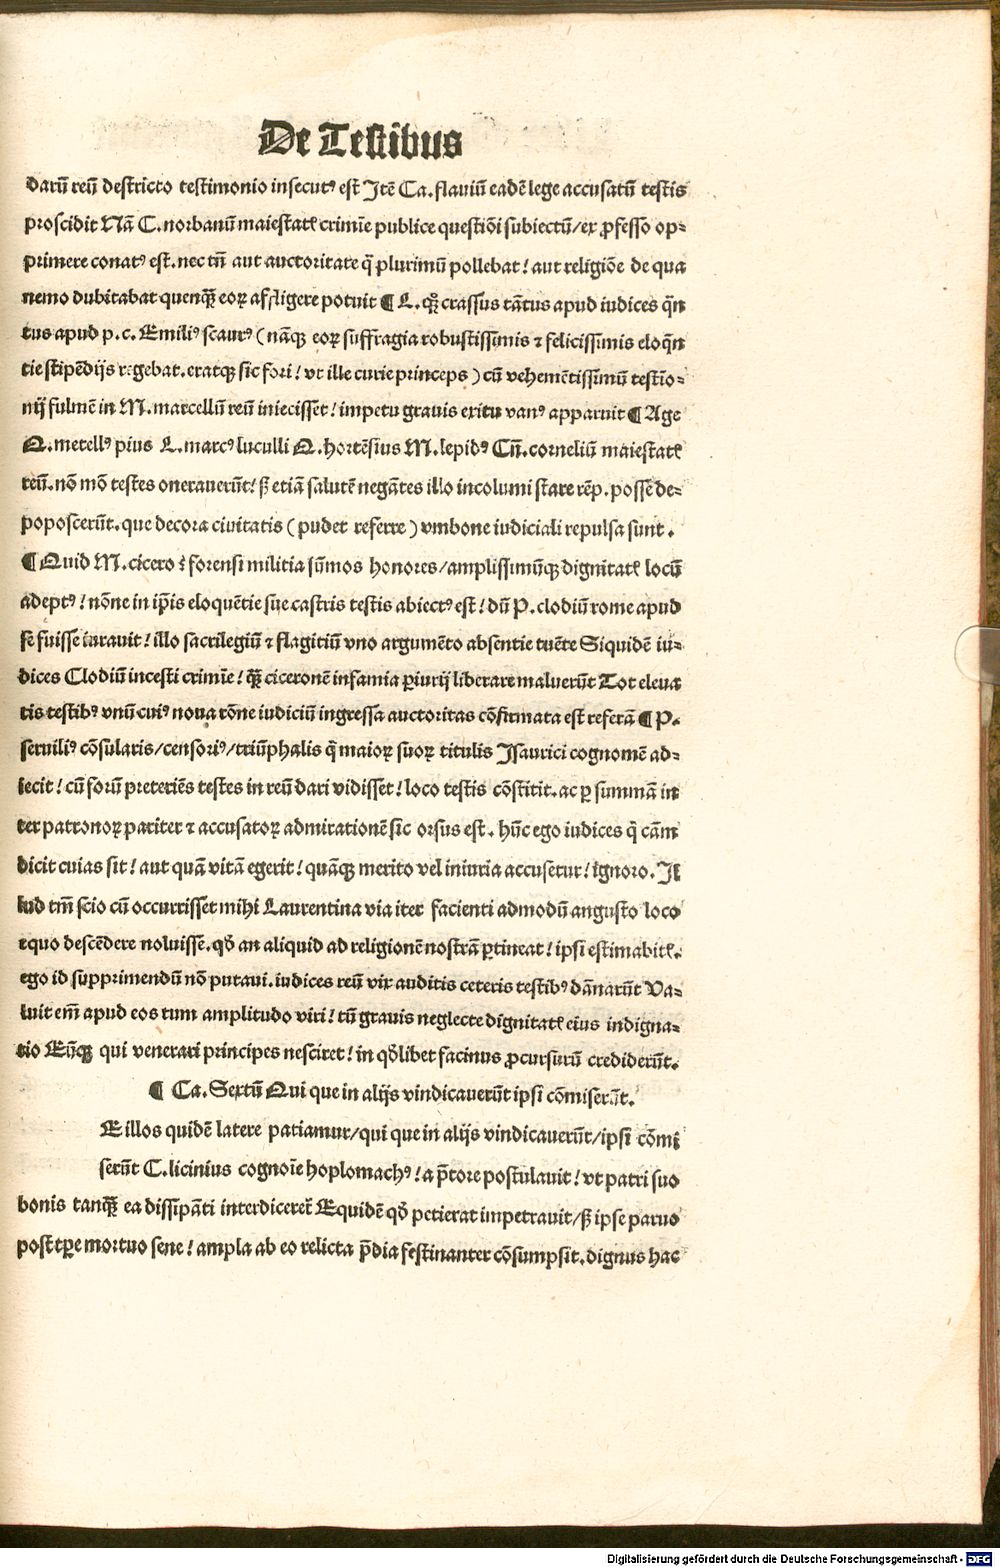 De Testibus
darū reū destricto testimonio insecutꝰ est Itē Ca. flauiū eadē lege accusatū testis
proscidit Nā C. norbanū maiestatꝭ crimīe publice questiōi subiectū/ex ꝓfesso op-
primere conatꝰ est. nec tñ aut auctoritate q̄ plurimū pollebat! aut religiōe de qua
nemo dubitabat quenq̄ꝫ eoꝝ affligere potuit ¶ L. q̄ꝫ crassus tātus apud iudices q̄n
tus apud p. c. Emiliꝰ scaurꝰ (nāqꝫ eoꝝ suffragia robustissimis ⁊ felicissimis eloq̄n
tie stipēdijs regebat. eratqꝫ sic fori! vt ille curie princeps) cū vehemētissimū testīo-
nij fulmē in M. marcellū reū iniecisset! impetu grauis exitu vanꝰ apparuit ¶ Age
Q. metellꝰ pius L. marcꝰ luculli Q. hortēsius M. lepidꝰ Cñ. corneliū maiestatꝭ
reū. nō mō testes onerauerūt! sꝫ etiā salutē negātes illo incolumi stare rēp. posse de-
poposcerūt. que decora ciuitatis (pudet referre) vmbone iudiciali repulsa sunt.
¶ Quid M. cicero ī forensi militia sūmos honores/amplissimūqꝫ dignitatꝭ locū
adeptꝰ! nōne in ip̄is eloquētie sue castris testis abiectꝰ est! dū P. clodiū rome apud
se fuisse iurauit! illo sacrilegiū ⁊ flagitiū vno argumēto absentie tuēte Siquidē iu-
dices Clodiū incesti crimīe! q̄ꝫ ciceronē infamia ꝑiurij liberare maluerūt Tot eleua
tis testibꝰ vnū cuiꝰ noua rōne iudiciū ingressa auctoritas cōfirmata est referā ¶ P.
seruiliꝰ cōsularis/censoriꝰ/triūphalis q̄ maioꝝ suoꝝ titulis Isaurici cognomē ad-
iecit! cū forū preteriēs testes in reū dari vidisset! loco testis cōstitit. ac ꝑ summā in
ter patronoꝝ pariter ⁊ accusatoꝝ admirationē sic orsus est. hūc ego iudices q̄ cām
dicit cuias sit! aut quā vitā egerit! quāqꝫ merito vel iniuria accusetur! ignoro. Il
lud tm̄ scio cū occurrisset mihi Laurentina via iter facienti admodū angusto loco
equo descēdere noluisse. qd̄ an aliquid ad religionē nostrā ꝑtineat! ipsi estimabitꝭ.
ego id supprimendū nō putaui. iudices reū vix auditis ceteris testibꝰ dānarūt Va-
luit em̄ apud eos tum amplitudo viri! tū grauis neglecte dignitatꝭ eius indigna-
tio Eūqꝫ qui venerari principes nesciret! in qd̄libet facinus ꝓcursurū crediderūt.
¶ Ca. Sextū Qui que in alijs vindicauerūt ipsi cōmiserūt.
E illos quidē latere patiamur/qui que in alijs vindicauerūt/ipsi cōmi
serūt C. licinius cognoīe hoplomachꝰ! a p̄tore postulauit! vt patri suo
bonis tanq̄ꝫ ea dissipāti interdiceret̄ Equidē qd̄ petierat impetrauit/sꝫ ipse paruo
post tꝑe mortuo sene! ampla ab eo relicta p̄dia festinanter cōsumpsit. dignus hac
Digitalisierung gefördert durch die Deutsche Forschungsgemeinschaft - DFG